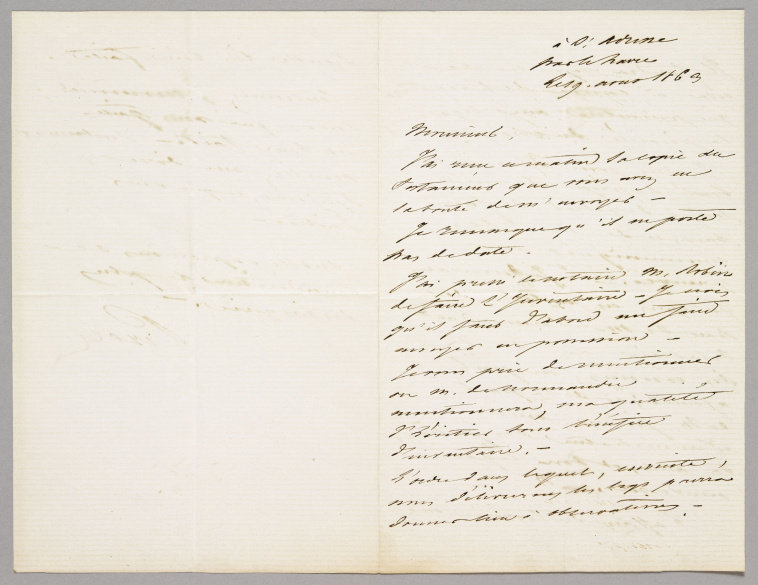 à St Adresse
par le havre
le 19. aout 1863
Monsieur,
J'ai reçu ce matin la copie du
testament que vous avez eu
la bonté de m'envoyer —
Je remarque qu'il ne porte
pas de date.
J'ai prié le notaire M. Robin
de faire l'Inventaire — Je crois
qu'il faut d'abord me faire
envoyer en possession —
Je vous prie de mentionner
ou M. de Normandie
mentionnera, ma qualité
d'héritier sous bénéfice
d'inventaire. —
L'ordre dans lequel, ensuite,
nous délivrerons les legs pourra
donner lieu à observations. —